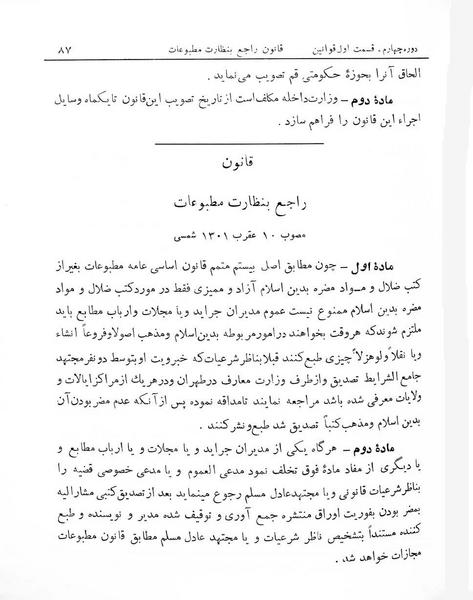 دوره چهارم ـ قسمت اول قوانین قانون راجع بنظارت مطبوعات ۸۷
الحاق آنرا بحوزهٔ حکومتی قم تصویب می‌نماید .
مادهٔ دوم ـ وزارت داخله مکلف است از تاریخ تصویب این قانون تا یکماه وسایل
اجراء این قانون را فراهم سازد .
قانون
راجع بنظارت مطبوعات
مصوب ۱۰ عقرب ۱۳۰۱ شمسی
مادهٔ اول ـ چون مطابق اصل بیستم متمم قانون اساسی عامه مطبوعات بغیر از
کتب ضلال و مواد مضره بدین اسلام آزاد و ممیزی فقط در مورد کتب ضلال و مواد
مضره بدین اسلام ممنوع نیست عموم مدیران جراید و یا مجلات و ارباب مطابع باید
ملتزم شوند که هر وقت بخواهند در امور مربوطه بدین اسلام و مذهب اصولا و فروعاً انشاء
و یا نقلاً ولو هزلاً چیزی طبع کنند قبلا بناظر شرعیات که خبرویت او بتوسط دو نفر مجتهد
جامع الشرایط تصدیق و از طرف وزارت معارف در طهران و در هریك از مراکز ایالات و
ولایات معرفی شده باشد مراجعه نمایند تا مداقه نموده پس از آنکه عدم مضر بودن آن
بدین اسلام و مذهب کتباً تصدیق شد طبع و نشر کنند .
مادهٔ دوم ـ هرگاه یکی از مدیران جراید و یا مجلات و یا ارباب مطابع و
یا دیگری از مفاد مادهٔ فوق تخلف نمود مدعی العموم و یا مدعی خصوصی قضیه را
بناظر شرعیات قانونی و یا مجتهد عادل مسلم رجوع مینماید بعد از تصدیق کتبی مشارالیه
بمضر بودن بفوریت اوراق منتشره جمع آوری و توقیف شده مدیر و نویسنده و طبع
کننده مستنداً بتشخیص ناظر شرعیات و یا مجتهد عادل مسلم مطابق قانون مطبوعات
مجازات خواهد شد .